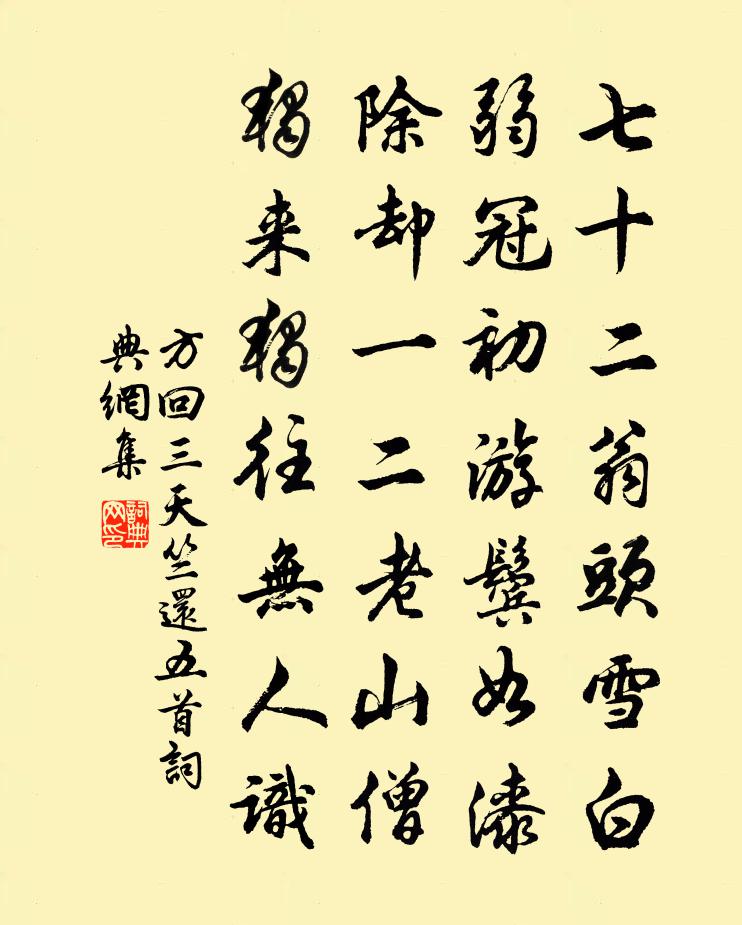 七十二翁頭雪白
弱冠初游鬓如漆
除却一二老山僧
獨来獨往無人識
方回三天竺還五首詞
典網集
詞典网印